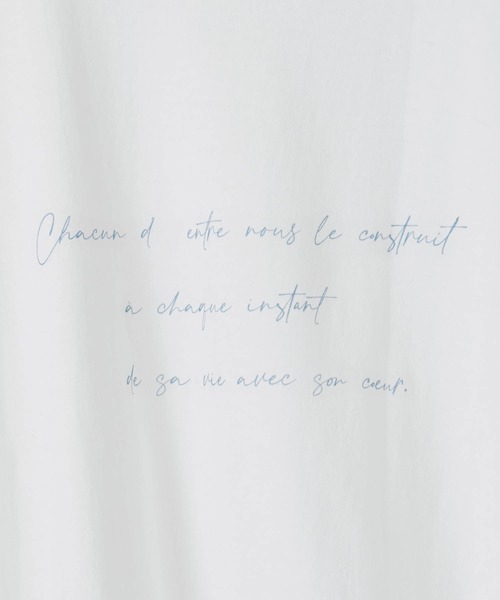 Chacun d entre nous le construit
à chaque instant
de sa vie avec son cœur.